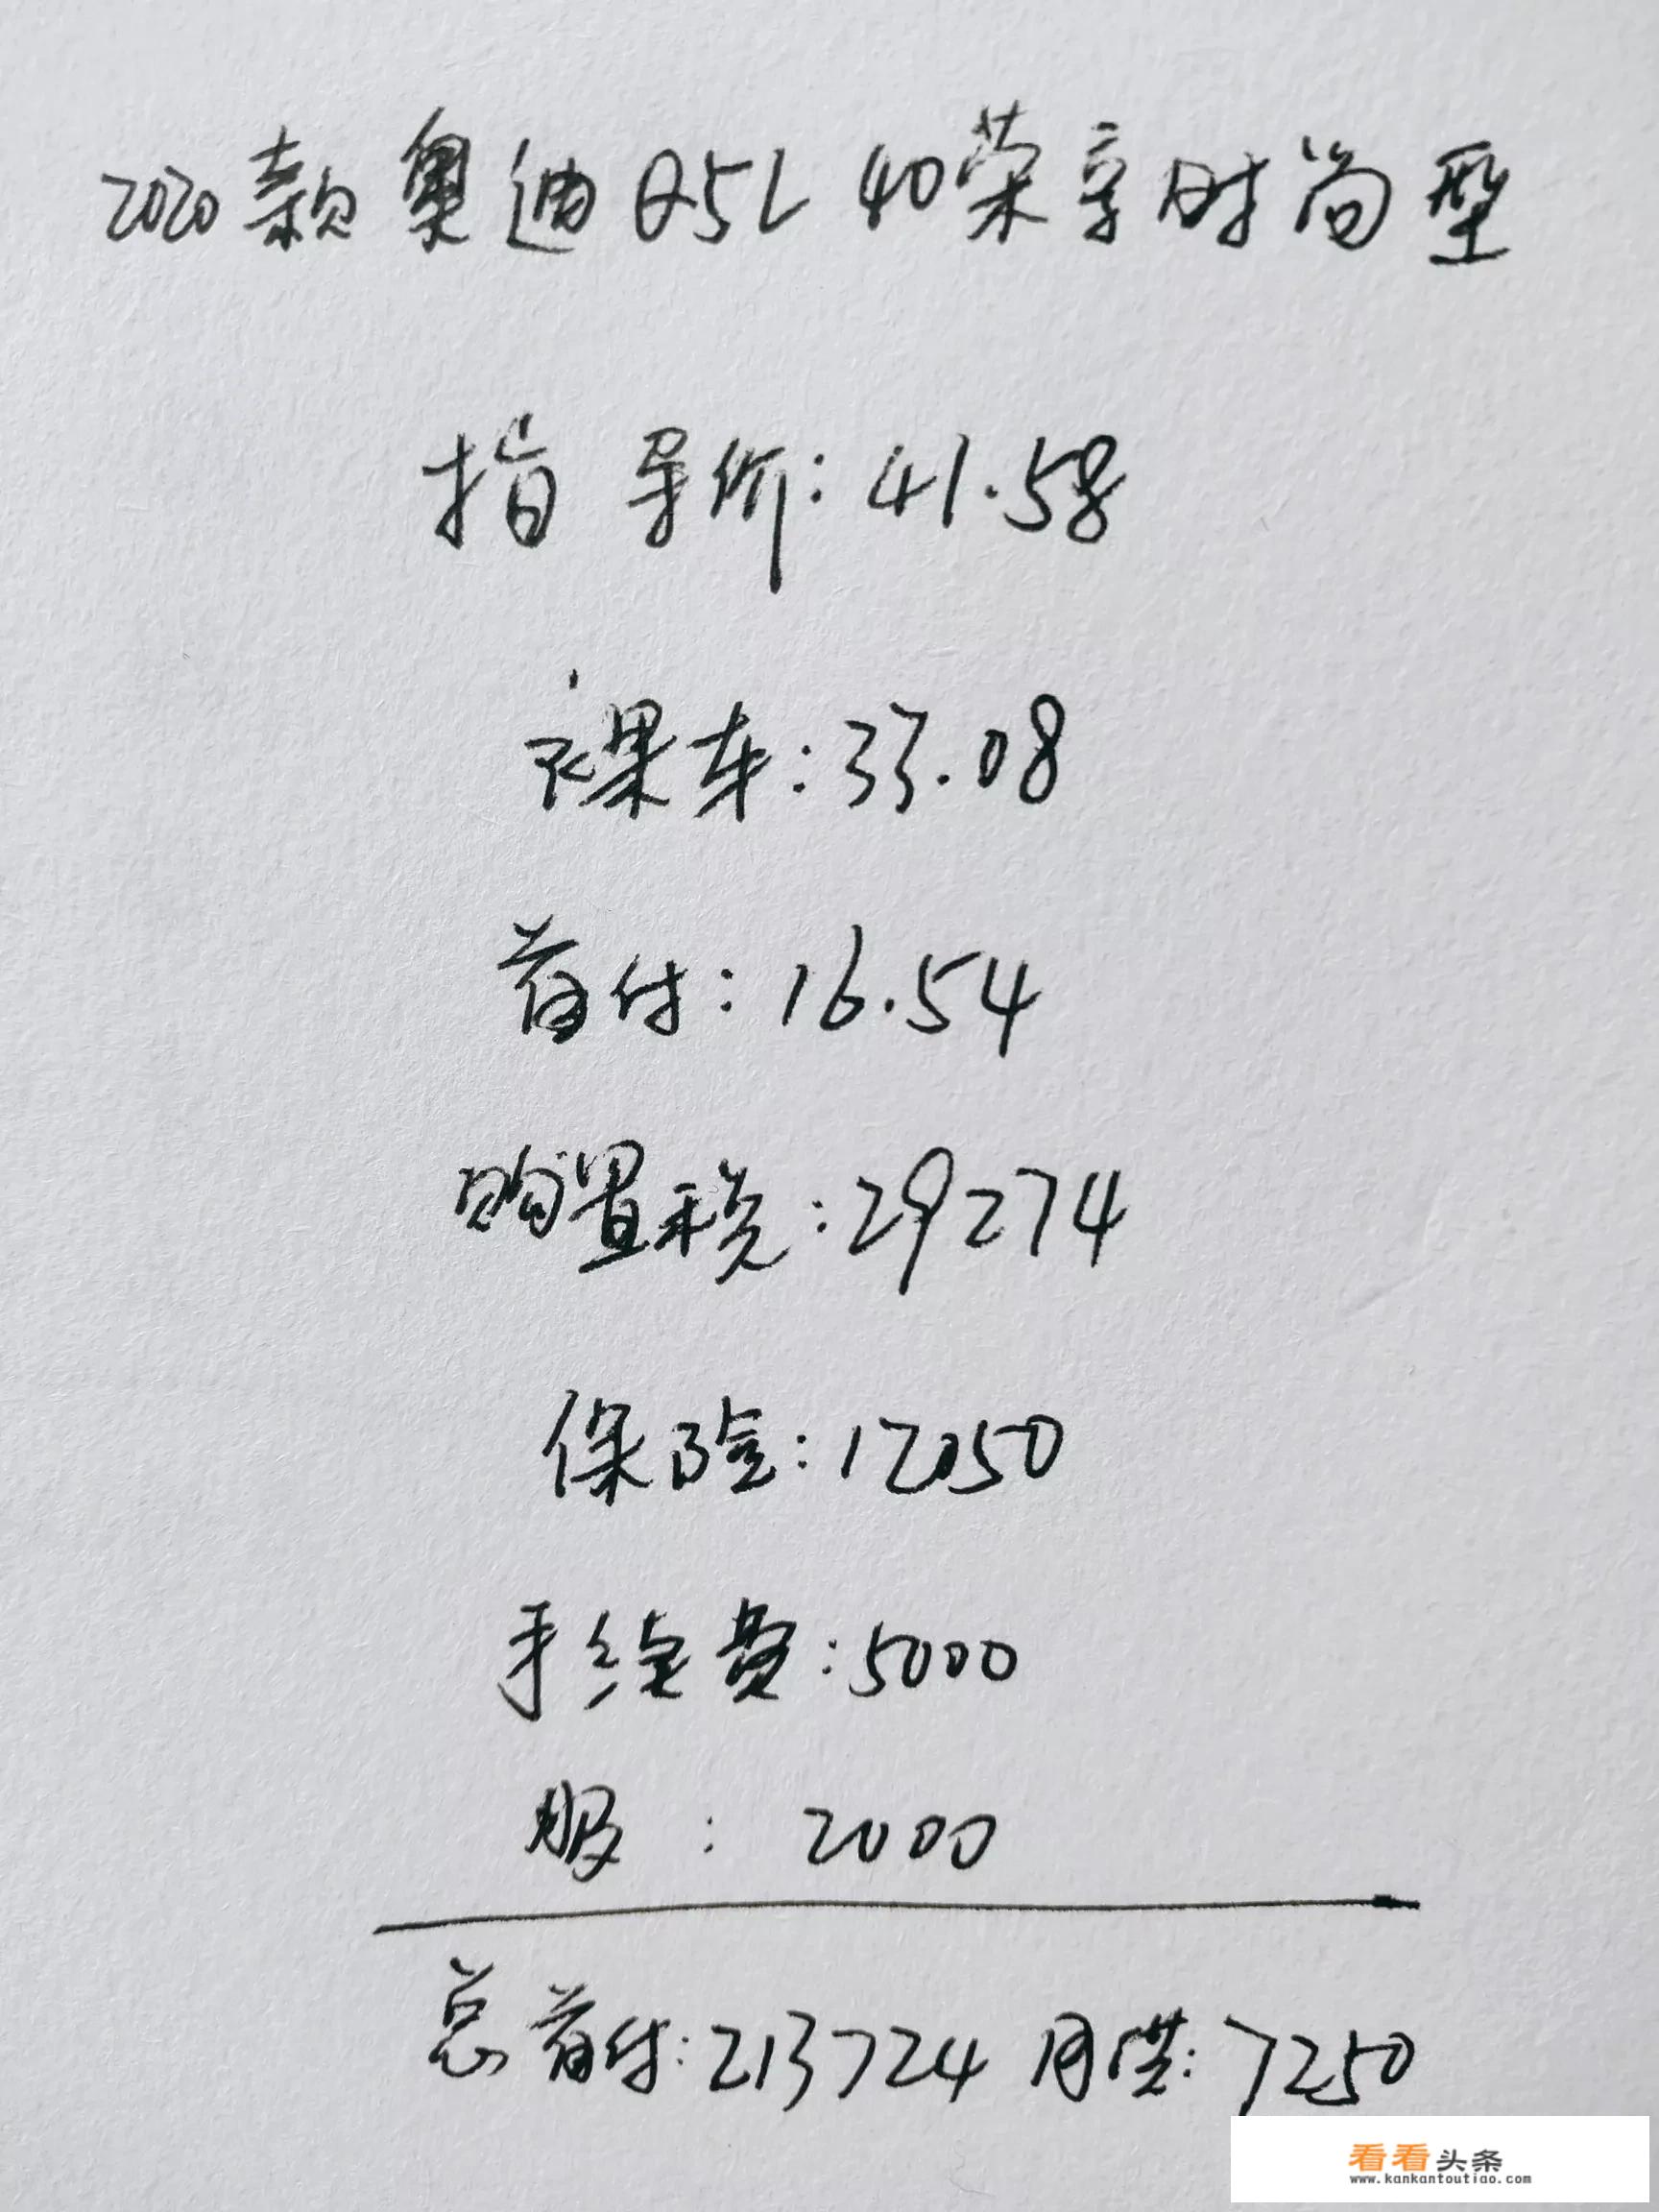 2020款奥迪Q5L 40荣享时尚型
指导价:41.58
裸车:33.08
首付:16.54
购置税:29274
保险:12050
手续费:5000
服:2000
总首付:213724 月供:7250
看看头条
www.kankantoutiao.com